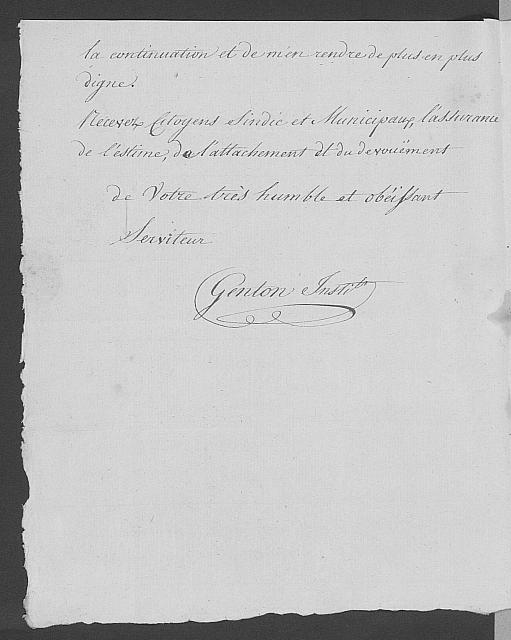 la continuation et de m'en rendre de plus en plus
digne.
Recevez Citoyens Sindic et Municipaux, l'assurance
de l'estime, de l'attachement et du devouëment
de Votre très humble et obéissant
Serviteur
Genton Instit.